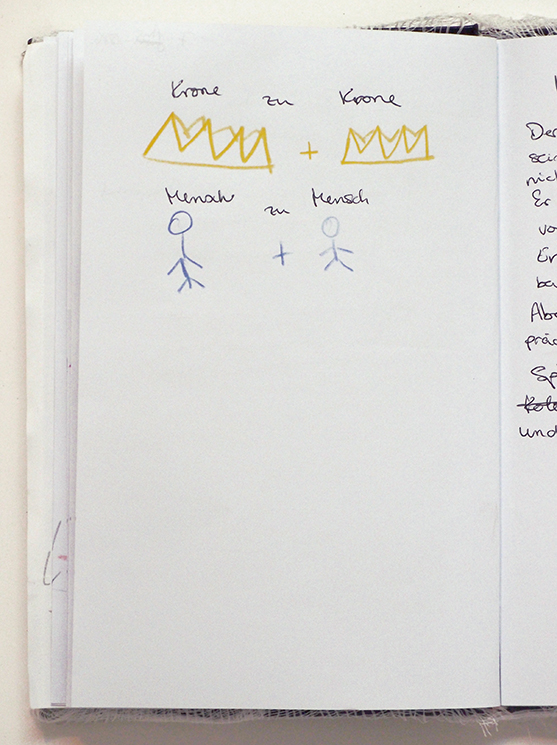 Krone zu Krone
+
Mensch zu Mensch
+
Der
sei
nich
Er
vo
Er
be
Abe
präc
Sp
und